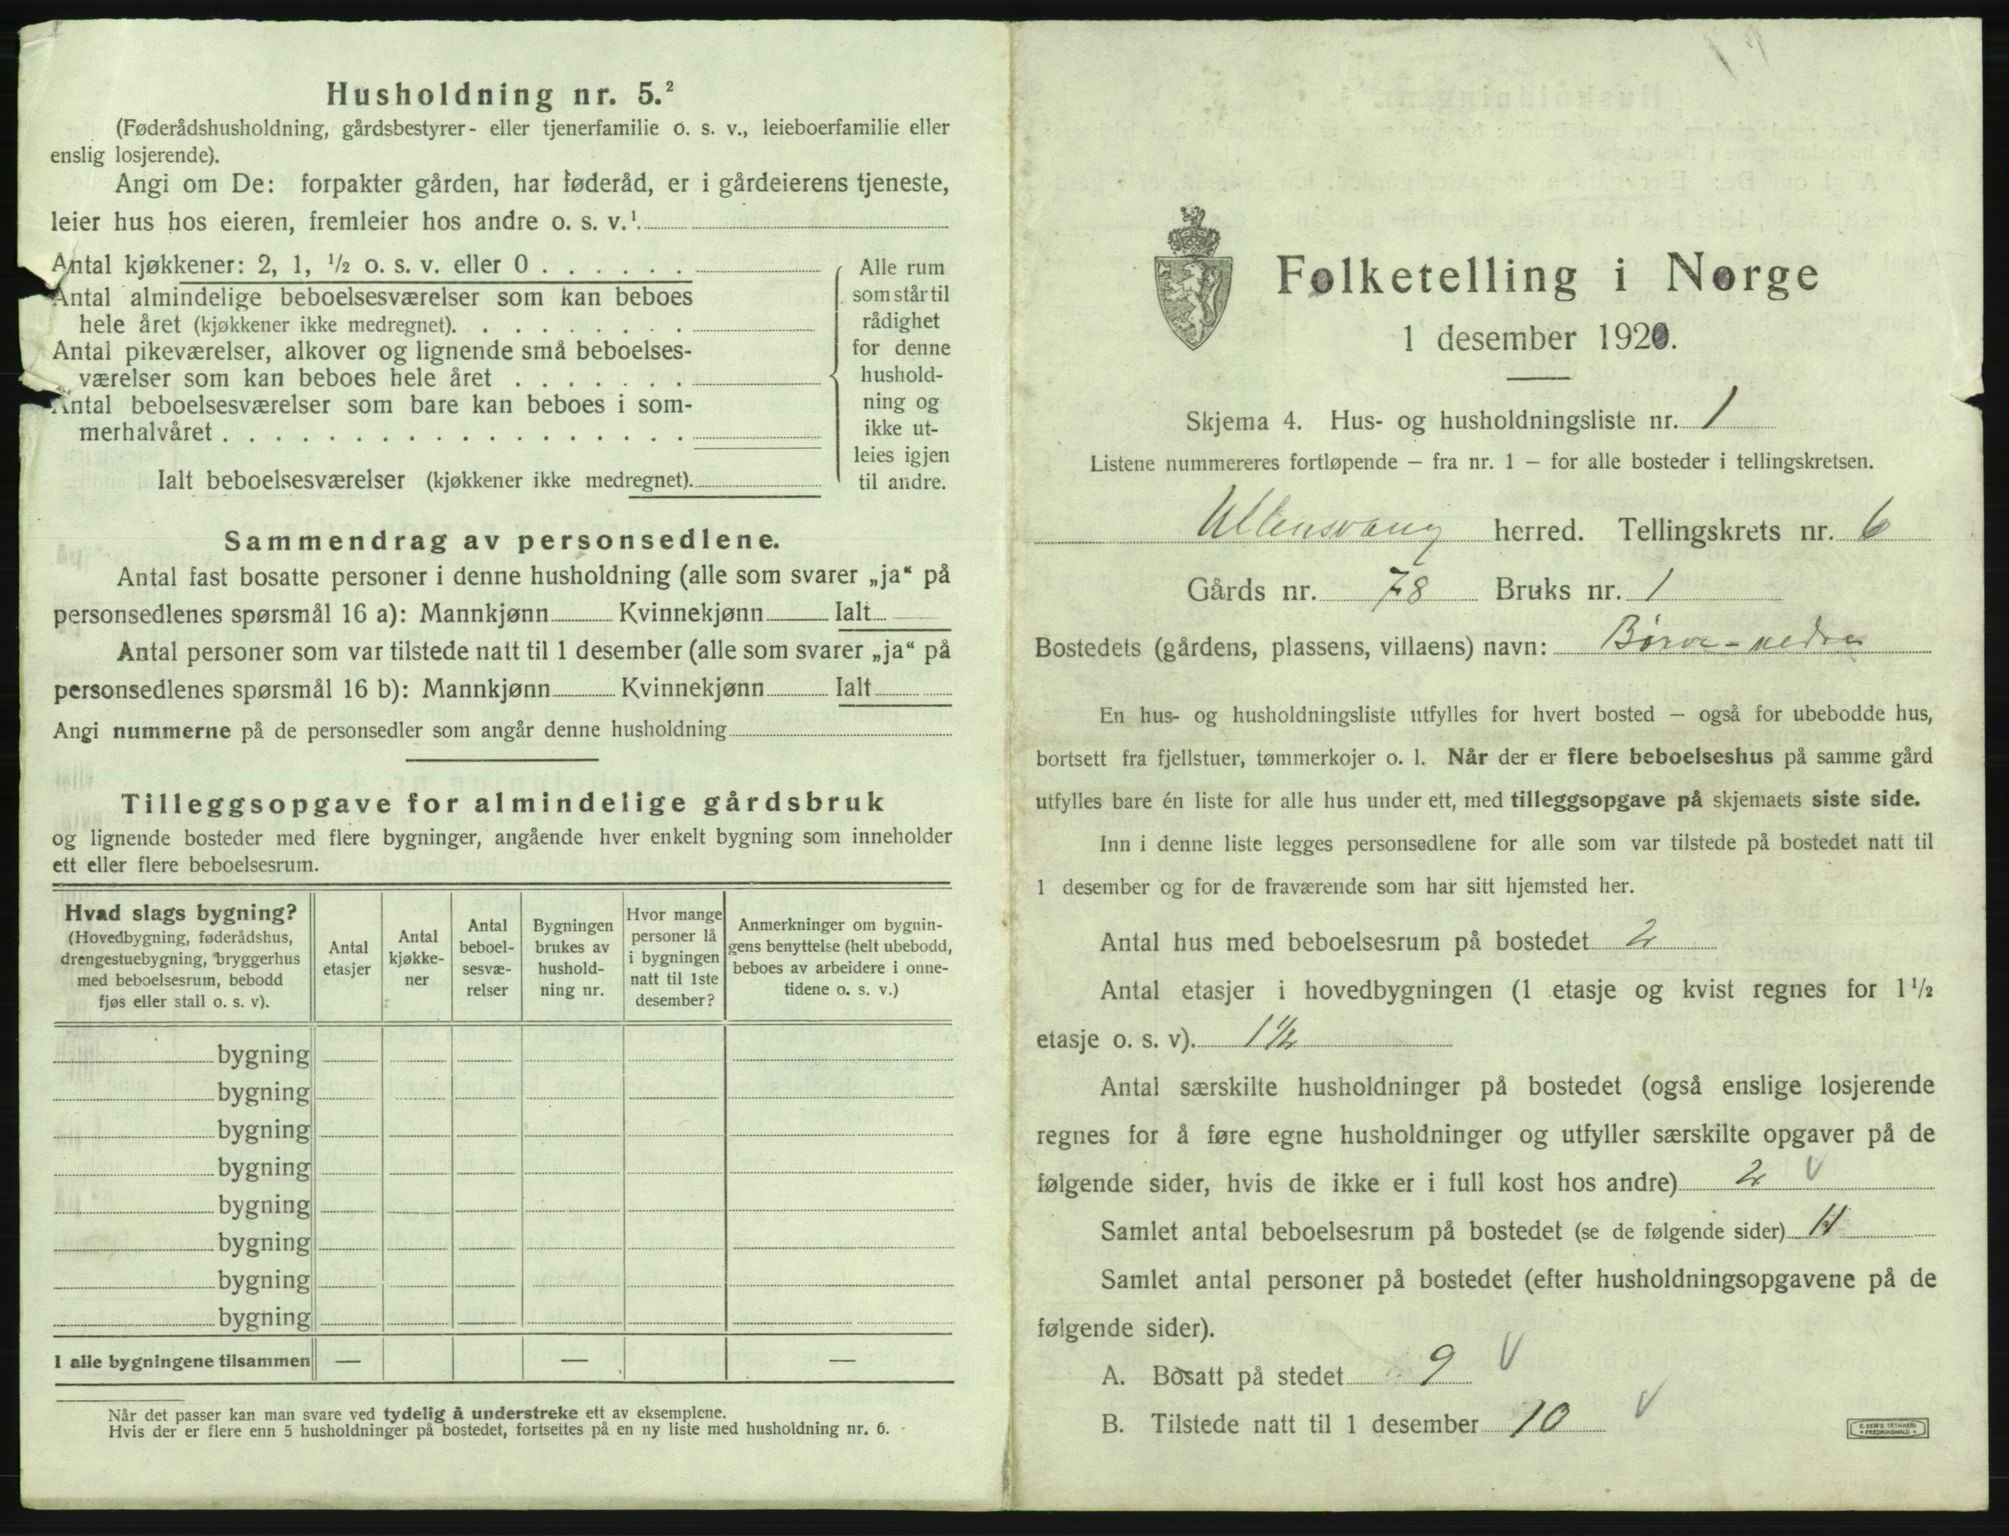 Husholdning nr. 5.²
(Føderådshusholdning, gårdsbestyrer- eller tjenerfamilie o. s. v., leieboerfamilie eller
enslig losjerende).
Angi om De: forpakter gården, har føderåd, er i gårdeierens tjeneste,
leier hus hos eieren, fremleier hos andre o. s. v.¹
Antal kjøkkener: 2, 1, ½ o. s. v. eller 0 . . . . . .
Antal almindelige beboelsesværelser som kan beboes
hele året (kjøkkener ikke medregnet). . . . . . . . .
Antal pikeværelser, alkover og lignende små beboelses-
værelser som kan beboes hele året . . . . . . .
Antal beboelsesværelser som bare kan beboes i som-
merhalvåret . . . . . . . . . . . . . . . . . .
Ialt beboelsesværelser (kjøkkener ikke medregnet).
Alle rum
som står til
rådighet
for denne
hushold-
ning og
ikke ut-
leies igjen
til andre.
Sammendrag av personsedlene.
Antal fast bosatte personer i denne husholdning (alle som svarer „ja“ på
personsedlenes spørsmål 16 a): Mannkjønn Kvinnekjønn Ialt
Antal personer som var tilstede natt til 1 desember (alle som svarer „ja“ på
personsedlenes spørsmål 16 b): Mannkjønn Kvinnekjønn Ialt
Angi nummerne på de personsedler som angår denne husholdning
Tilleggsopgave for almindelige gårdsbruk
og lignende bosteder med flere bygninger, angående hver enkelt bygning som inneholder
ett eller flere beboelsesrum.
Hvad slags bygning?
(Hovedbygning, føderådshus,
drengestuebygning, bryggerhus
med beboelsesrum, bebodd
fjøs eller stall o. s. v).
Antal
etasjer
Antal
kjøkke-
ner
Antal
beboel-
sesvæ-
relser
Bygningen
brukes av
hushold-
ning nr.
Hvor mange
personer lå
i bygningen
natt til 1ste
desember?
Anmerkninger om bygnin-
gens benyttelse (helt ubebodd,
beboes av arbeidere i onne-
tidene o. s. v.)
bygning
bygning
bygning
bygning
bygning
bygning
bygning
bygning
I alle bygningene tilsammen — — —
Når det passer kan man svare ved tydelig å understreke ett av eksemplene.
Hvis der er flere enn 5 husholdninger på bostedet, fortsettes på en ny liste med husholdning nr. 6.
Folketelling i Norge
1 desember 1920.
Skjema 4. Hus- og husholdningsliste nr. 1
Listene nummereres fortløpende – fra nr. 1 – for alle bosteder i tellingskretsen.
Ullensvang herred. Tellingskrets nr. 6
Gårds nr. 78 Bruks nr. 1
Bostedets (gårdens, plassens, villaens) navn: Børve-nedre
En hus- og husholdningsliste utfylles for hvert bosted – også for ubebodde hus,
bortsett fra fjellstuer, tømmerkojer o. l. Når der er flere beboelseshus på samme gård
utfylles bare én liste for alle hus under ett, med tilleggsopgave på skjemaets siste side.
Inn i denne liste legges personsedlene for alle som var tilstede på bostedet natt til
1 desember og for de fraværende som har sitt hjemsted her.
Antal hus med beboelsesrum på bostedet 2
Antal etasjer i hovedbygningen (1 etasje og kvist regnes for 1½
etasje o. s. v). 1½
Antal særskilte husholdninger på bostedet (også enslige losjerende
regnes for å føre egne husholdninger og utfyller særskilte opgaver på de
følgende sider, hvis de ikke er i full kost hos andre) 2 V
Samlet antal beboelsesrum på bostedet (se de følgende sider)
Samlet antal personer på bostedet (efter husholdningsopgavene på de
følgende sider).
A. Bosatt på stedet 9 V
B. Tilstede natt til 1 desember 10 V